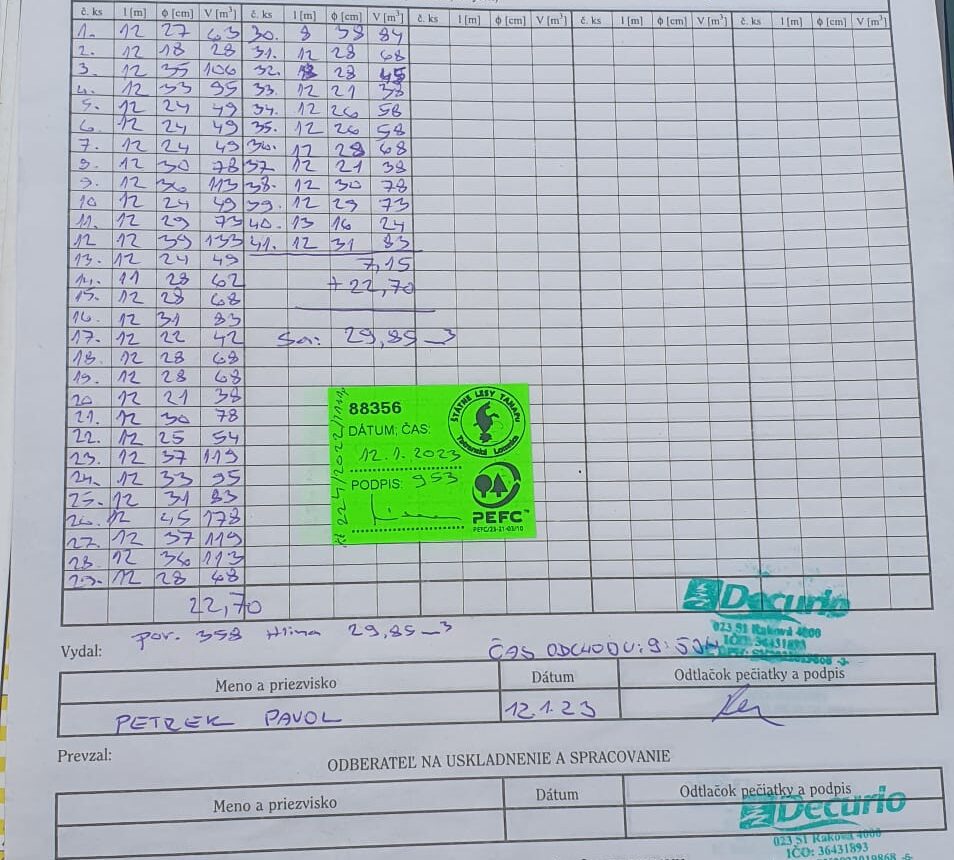 č. ks l [m] ϕ [cm] V [m³] č. ks l [m] ϕ [cm] V [m³] č. ks l [m] ϕ [cm] V [m³] č. ks l [m] ϕ [cm] V [m³] č. ks l [m] ϕ [cm] V [m³]
1. 12 27 63 30. 9 38 84
2. 12 18 28 31. 12 28 68
3. 12 35 106 32. 28 45
4. 12 33 95 33. 12 21 38
5. 12 24 49 34. 12 26 58
6. 12 24 49 35. 12 26 58
7. 12 24 49 36. 12 28 68
8. 12 30 78 37 12 21 38
9. 12 36 113 38. 12 30 78
10 12 24 49 39. 12 29 73
11. 12 29 73 40. 13 16 24
12 12 39 133 41. 12 31 83
13. 12 24 49 7,15
14. 11 28 62 + 22,70
15. 12 28 68
16. 12 31 83
17. 12 22 42 Sa: 29,85 m3
18. 12 28 68
19. 12 28 68
20 12 21 38
21. 12 30 78
22. 12 25 54
23. 12 37 119
24. 12 33 95
25. 12 31 83
26. 12 45 178
27. 12 37 119
28. 12 36 113
29. 12 28 68
22,70
88356
DÁTUM, ČAS:
12.1.2023
PODPIS: 953
ŠTÁTNE LESY TANAPU
Tatranská Lomnica
PEFC™
PEFC/23-21-03/10
por. 358 Hlina 29,85 m3
Vydal:
ČAS ODCHODU: 9:50H
Decurio
023 51 Raková 4000
IČO: 36431893
Meno a priezvisko Dátum Odtlačok pečiatky a podpis
PETREK PAVOL 12.1.23
Prevzal:
ODBERATEĽ NA USKLADNENIE A SPRACOVANIE
Meno a priezvisko Dátum Odtlačok pečiatky a podpis
Decurio
023 51 Raková 4000
IČO: 36431893